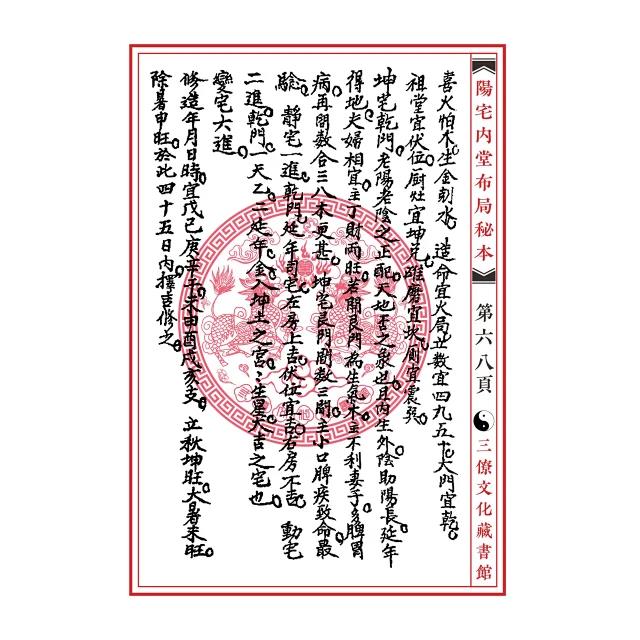 陽宅內堂布局秘本
第六八頁
三僚文化藏書館
喜火怕木生金剋水。造命宜火局丑数宜四九五十大門宜乾。
祖堂宜伏位。厨灶宜坤兑。碓磨宜坎。厠宜震巽。
坤宅乾門。老陽老陰之正配。天地否之象也。且内生外陰助陽長。延年
得地。夫婦相宜。主丁財兩旺。若開艮門為生氣木。主不利妻子。多脾胃
病。再間数合三八木更甚。坤宅艮門間数三間。主小口脾疾致命最
驗。靜宅一進。乾門延年。司宅在房上吉。伏位宜吉。右房不吉。動宅
二進。乾門一天乙。二延年金入坤土之宮。二生星大吉之宅也。
變宅大進。
修造年月日時。宜戊己庚辛干。未申酉戌亥支。立秋坤旺。大暑未旺。
除暑申旺。於此四十五日内擇吉修之。